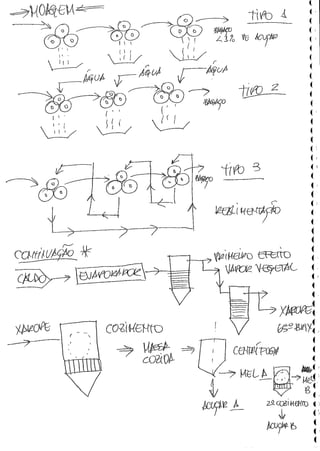 MOAGEM
TIPO 1
BAGAÇO
<1% DE AÇUCAR
ÁGUA
ÁGUA
ÁGUA
TIPO 2
BAGAÇO
TIPO 3
BAGAÇO
REALIMENTAÇÃO
CONTINUAÇÃO *
PRIMEIRO EFEITO
VAPOR VEGETAL
CALDO
EVAPORADOR
XAROPE
65º BRIX
XAROPE
COZIMENTO
MASSA
COZIDA
CENTRÍFUGA
MEL A
MEL
B
AÇUCAR A
2º COZIMENTO
AÇUCAR B